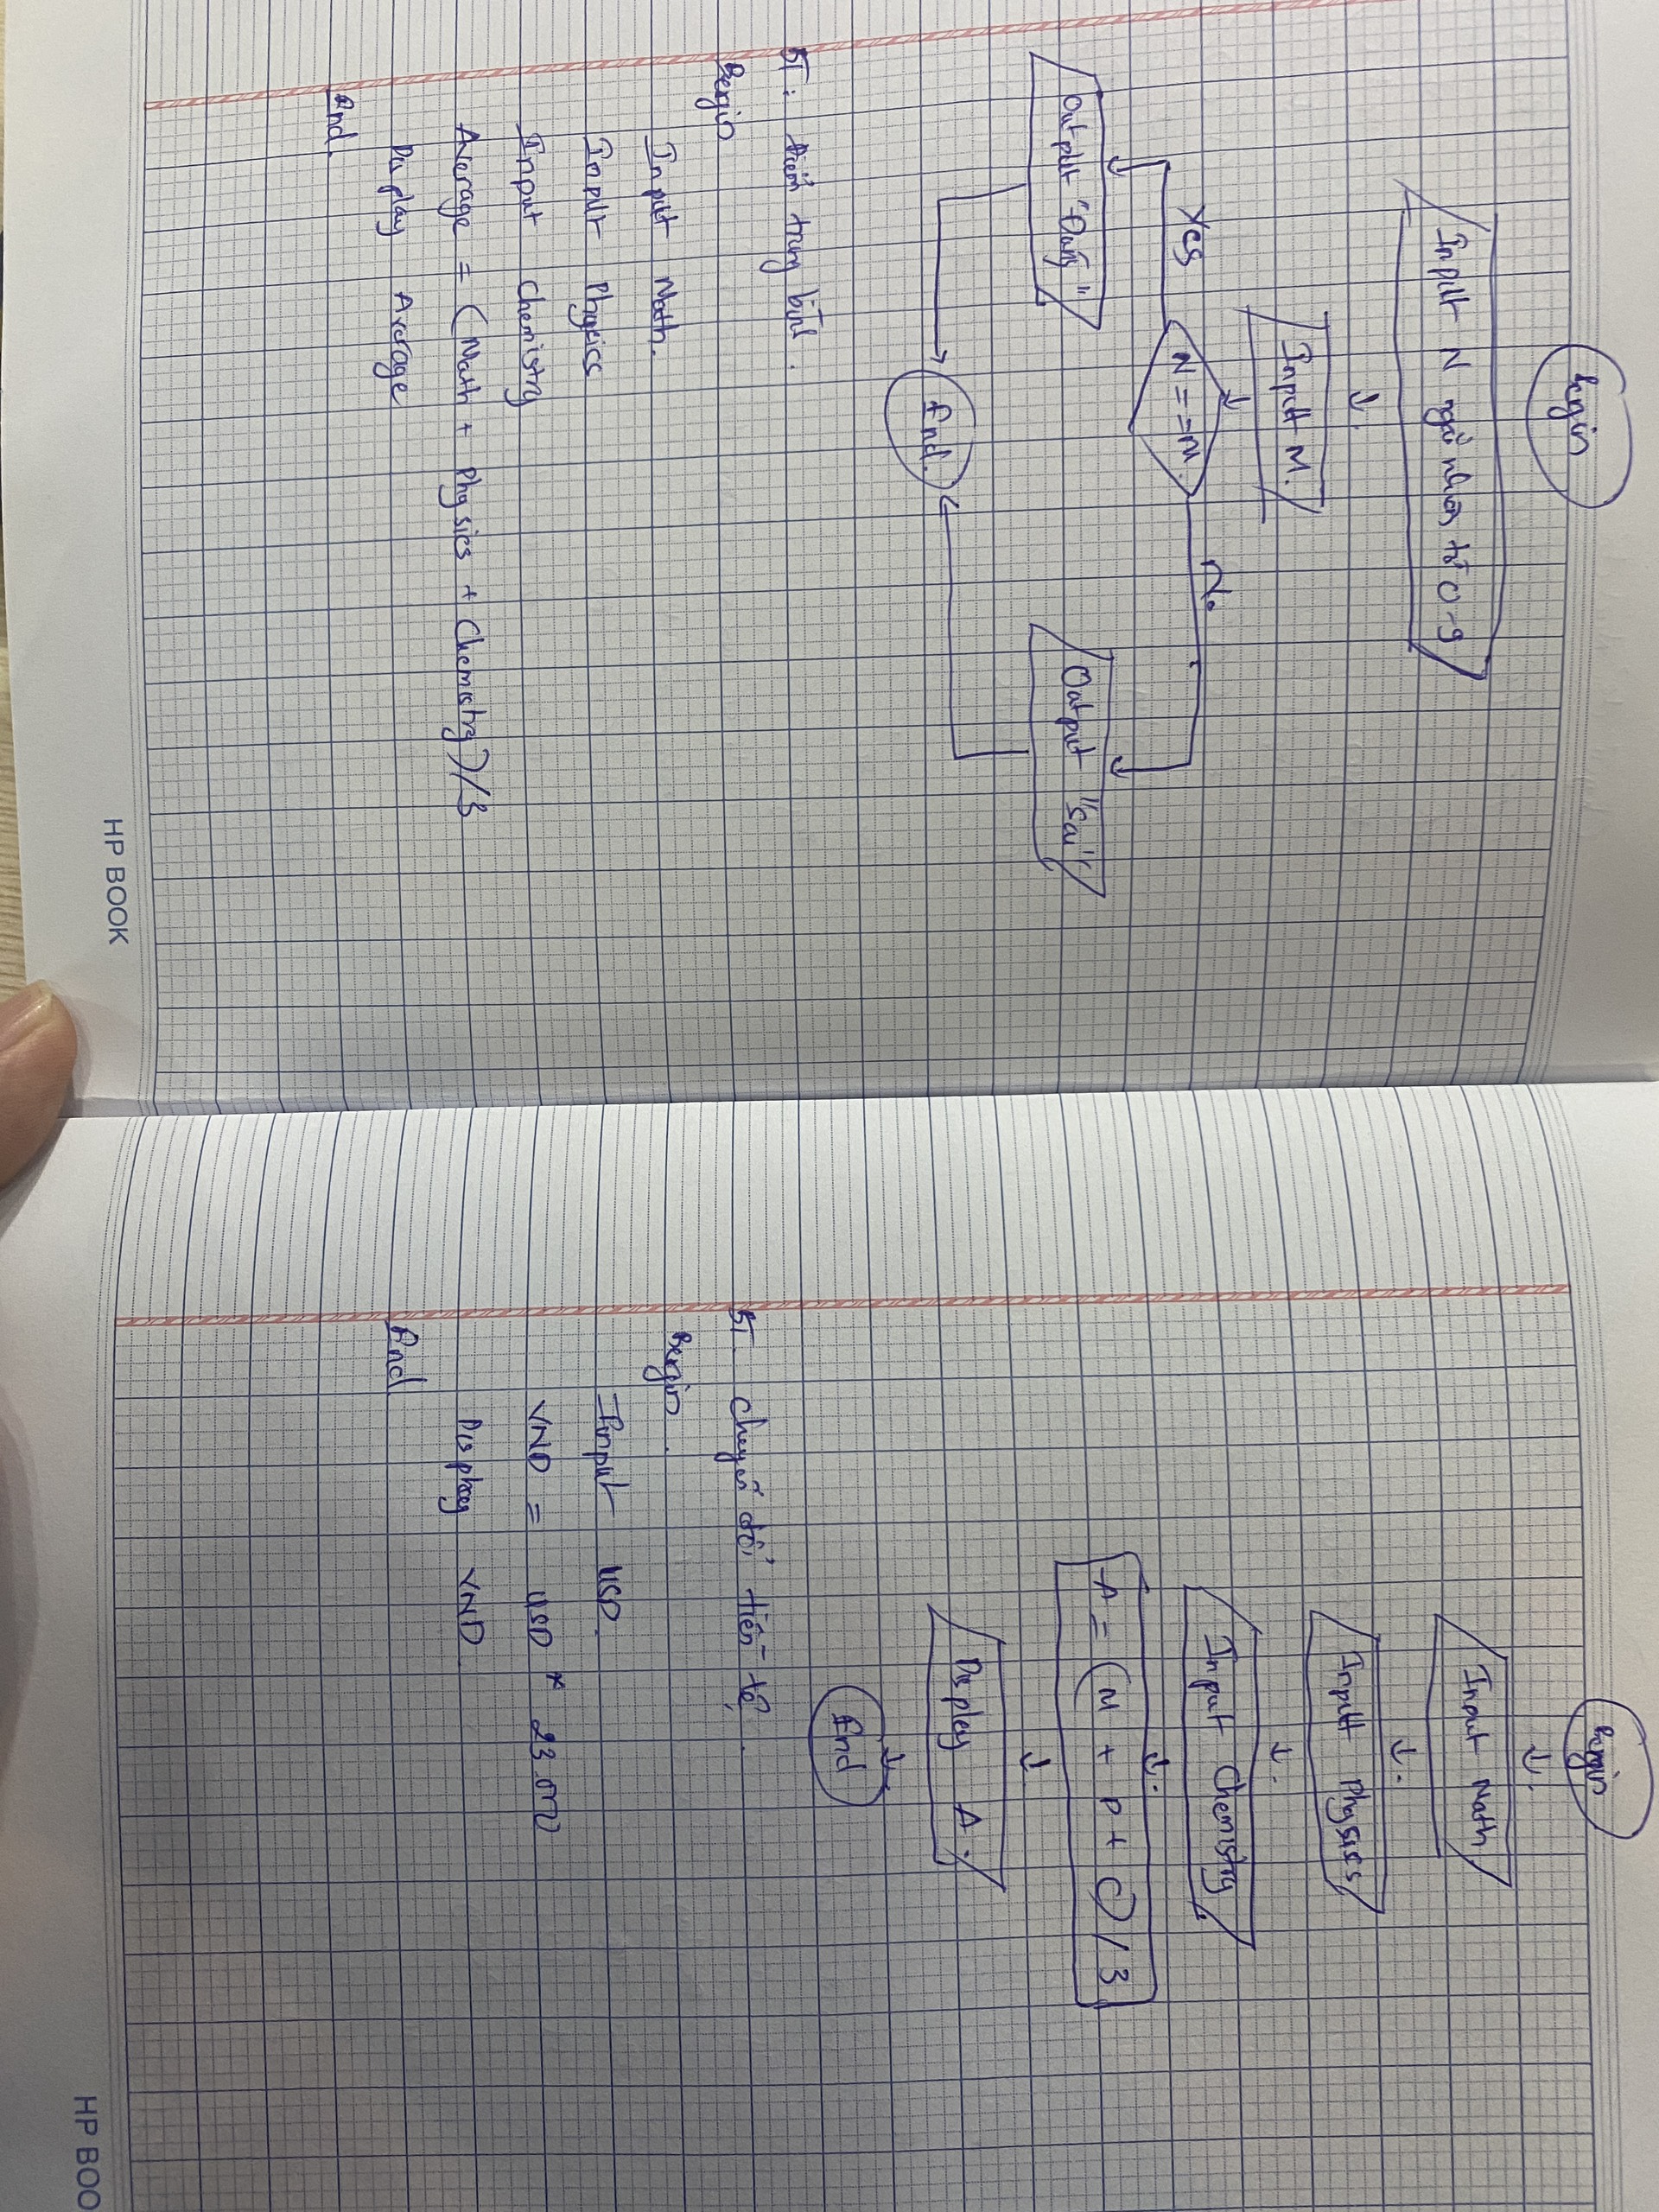 Begin
Input N ngẫu nhiên từ 0-9
Input M.
N==M
Yes
No
Output "Đúng"
Output "Sai"
End.
BT: Điểm trung bình.
Begin
Input Math.
Input Physics
Input Chemistry
Average = (Math + Physics + Chemistry)/3
Display Average
End.
HP BOOK
Begin
Input Math
Input Physics
Input Chemistry
A = (M + P + C) / 3
Display A.
End
BT. Chuyển đổi tiền tệ.
Begin.
Input USD.
VND = USD * 23.000
Display VND.
End
HP BOO